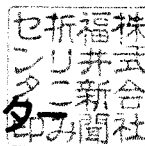 株式会社
福井新聞
折りこみ
センター
印